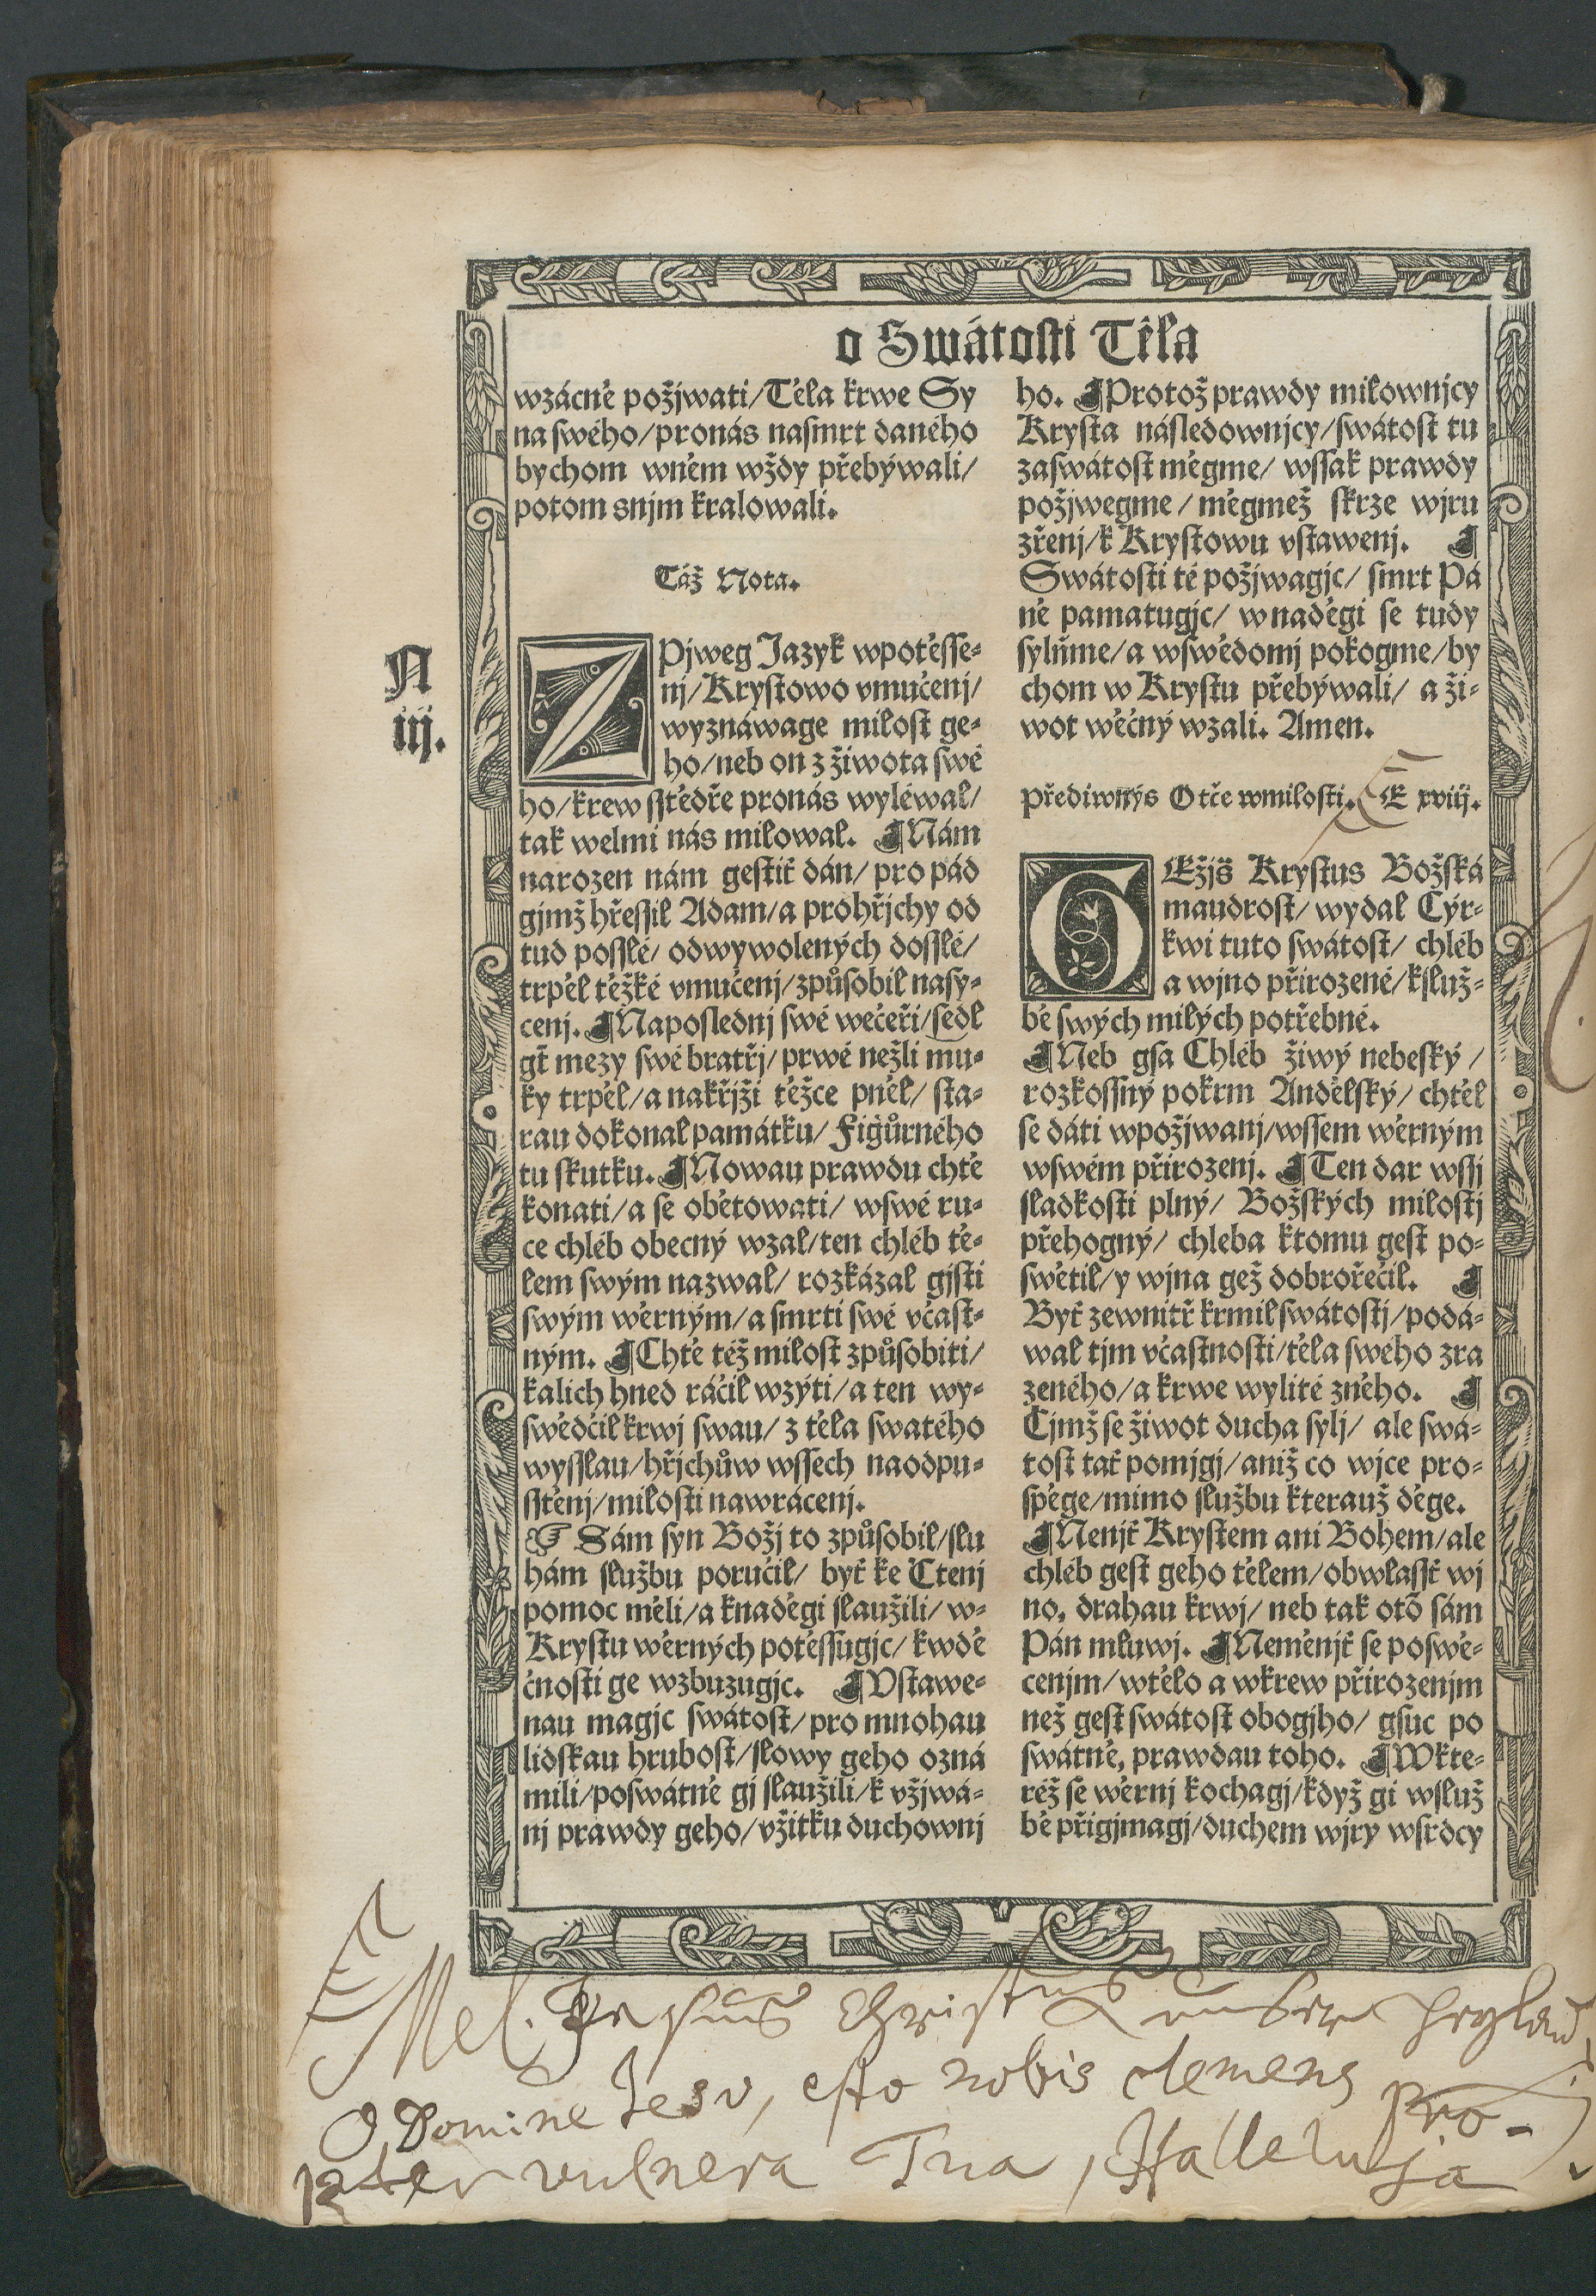 o Swátosti Těla
wzácně požjwati/Těla krwe Sy
na swého/pronás nasmrt daného
bychom wněm wždy přebýwali/
potom snjm kralowali.
Táž Nota.
N
iij.
ZPjweg Jazyk wpotěsse-
nj/Krystowo vmučenj/
wyznáwage milost ge-
ho/neb on z žiwota swé
ho/krew sstědře pronás wyléwal/
tak welmi nás milowal. ¶Nám
narozen nám gestiť dán/pro pád
gjmž hřessil Adam/a prohřjchy od
tud posslé/odwywolených dosslé/
trpěl těžké vmučenj/způsobil nasy-
cenj. ¶Naposlednj swé wečeři/sedl
gť mezy swé bratřj/prwé nežli mu-
ky trpěl/a nakřjži těžce pněl/sta-
rau dokonal památku/Figůrného
tu skutku. ¶Nowau prawdu chtě
konati/a se obětowati/wswé ru-
ce chléb obecný wzal/ten chléb tě-
lem swým nazwal/rozkázal gjsti
swým wěrným/a smrti swé včast-
ným. ¶Chtě též milost způsobiti/
kalich hned ráčil wzýti/a ten wy-
swědčil krwj swau/z těla swatého
wysslau/hřjchůw wssech naodpu-
sstěnj/milosti nawrácenj.
☞ Sám syn Božj to způsobil/slu
hám službu poručil/byť ke Čtenj
pomoc měli/a knaděgi slaužili/w-
Krystu wěrných potěssugjc/kwdě
čnosti ge wzbuzugjc. ¶Vstawe-
nau magjc swátost/pro mnohau
lidskau hrubost/slowy geho ozná
mili/poswátně gj slaužili/k vžjwá-
nj prawdy geho/vžitku duchownj
ho. ¶Protož prawdy milownjcy
Krysta následownjcy/swátost tu
zaswátost měgme/wssak prawdy
požjwegme/měgmež skrze wjru
zřenj/k Krystowu vstawenj. ¶
Swátosti té požjwagjc/smrt Pá
ně pamatugjc/wnaděgi se tudy
sylňme/a wswědomj pokogme/by
chom w Krystu přebýwali/a ži-
wot wěčný wzali. Amen.
Přediwnýs Otče wmilosti. E xviij.
GEžjš Krystus Božská
maudrost/wydal Cýr-
kwi tuto swátost/chléb
a wjno přirozené/ksluž-
bě swých milých potřebné.
¶Neb gsa Chléb žiwý nebeský/
rozkossný pokrm Andělský/chtěl
se dáti wpožjwanj/wssem wěrným
wswém přirozenj. ¶Ten dar wssj
sladkosti plný/Božských milostj
přehogný/chleba ktomu gest po-
swětil/y wjna gež dobrořečil. ¶
Byť zewnitř krmil swátostj/podá-
wal tjm včastnosti/těla sweho zra
zeného/a krwe wylité zněho. ¶
Čjmž se žiwot ducha sylj/ale swá-
tost tať pomjgj/aniž co wjce pro-
spěge/mimo službu kterauž děge.
¶Nenjť Krystem ani Bohem/ale
chléb gest geho tělem/obwlassť wj
no, drahau krwj/neb tak otõ sám
Pán mluwj. ¶Neměnjť se poswě-
cenjm/wtělo a wkrew přirozenjm
než gest swátost obogjho/gsuc po
swátně, prawdau toho. ¶Wkte-
réž se wěrnj kochagj/když gi wsluž
bě přigjmagj/duchem wjry wsrdcy
Mel. Jesus Christus unser Heyland
O Domine Jesu, esto nobis clemens pro-
pter vulnera Tua, Halleluja